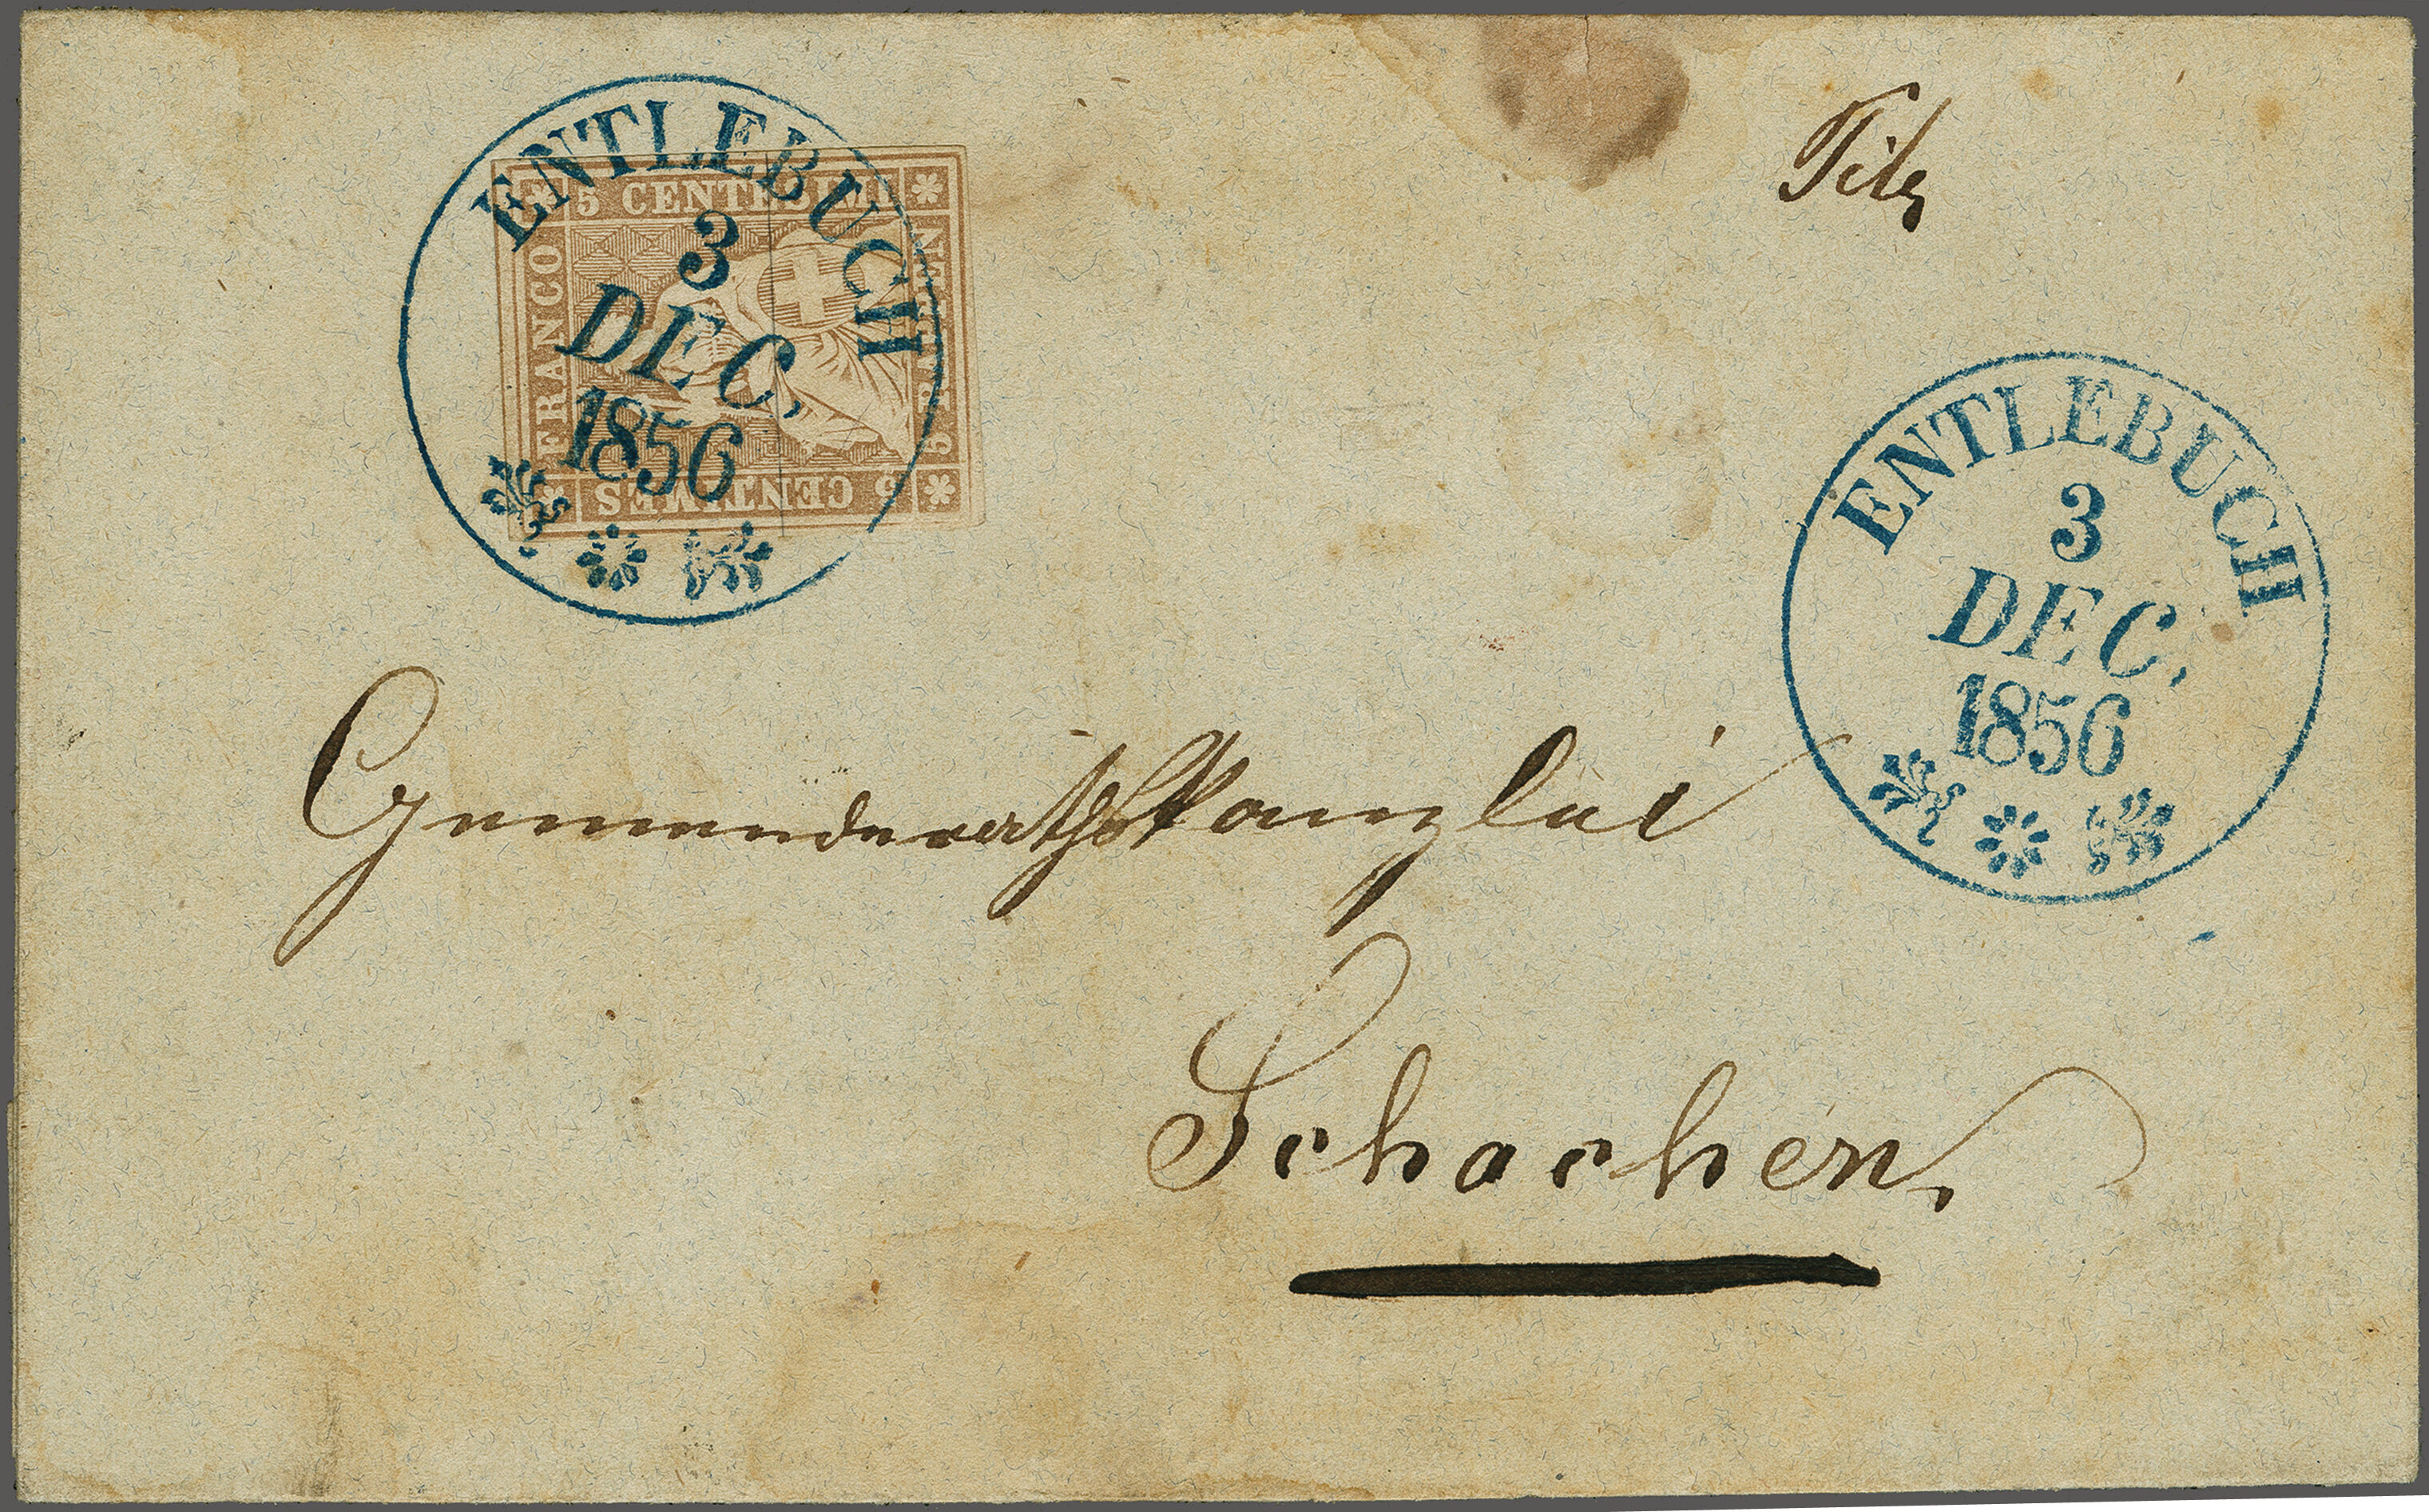 ENTLEBUCH
3
DEC.
1856
5 CENTESIMI
FRANCO
5 RAPPEN
5 CENTIMES
ENTLEBUCH
3
DEC.
1856
Gemeinderathskanzlei
Schachen.